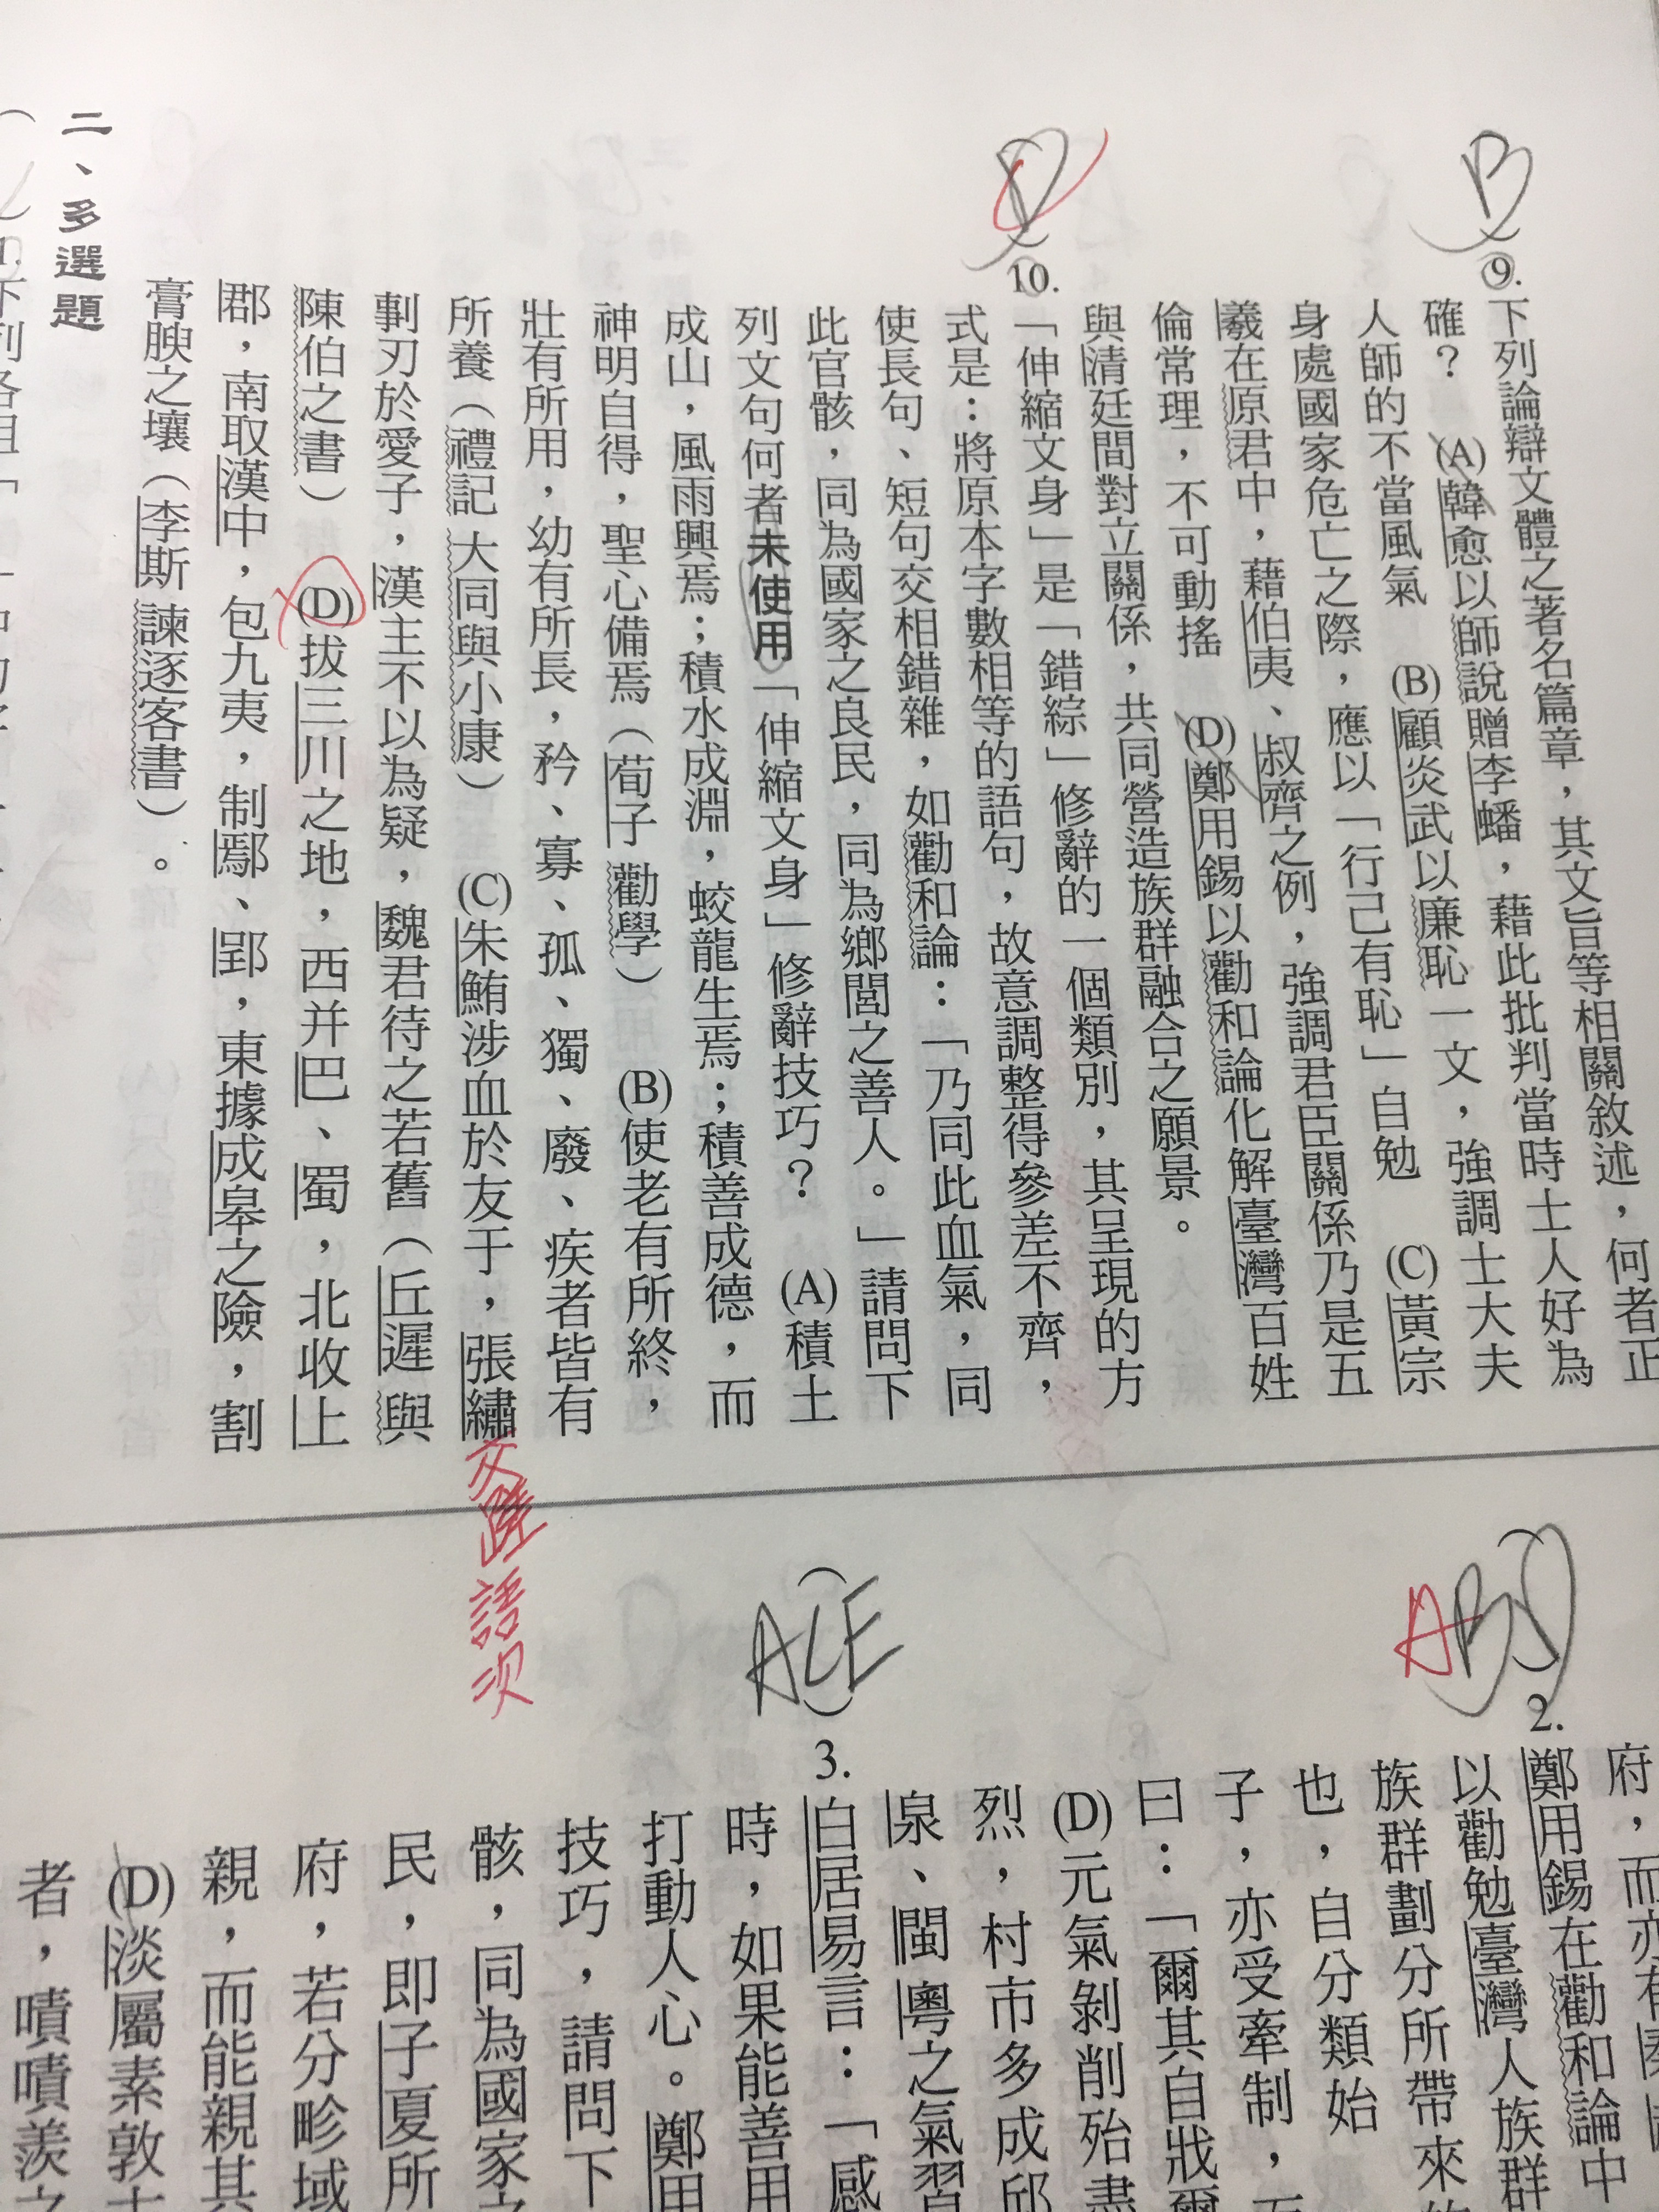 B
9.
下列論辯文體之著名篇章，其文旨等相關敘述，何者正
確？　(A)韓愈以師說贈李蟠，藉此批判當時士人好為
人師的不當風氣　(B)顧炎武以廉恥一文，強調士大夫
身處國家危亡之際，應以「行己有恥」自勉　(C)黃宗
羲在原君中，藉伯夷、叔齊之例，強調君臣關係乃是五
倫常理，不可動搖　(D)鄭用錫以勸和論化解臺灣百姓
與清廷間對立關係，共同營造族群融合之願景。
D
10.
「伸縮文身」是「錯綜」修辭的一個類別，其呈現的方
式是：將原本字數相等的語句，故意調整得參差不齊，
使長句、短句交相錯雜，如勸和論：「乃同此血氣，同
此官骸，同為國家之良民，同為鄉閭之善人。」請問下
列文句何者未使用「伸縮文身」修辭技巧？　(A)積土
成山，風雨興焉；積水成淵，蛟龍生焉；積善成德，而
神明自得，聖心備焉（荀子 勸學）　(B)使老有所終，
壯有所用，幼有所長，矜、寡、孤、獨、廢、疾者皆有
所養（禮記 大同與小康）　(C)朱鮪涉血於友于，張繡
剚刃於愛子，漢主不以為疑，魏君待之若舊（丘遲 與
陳伯之書）　(D)拔三川之地，西并巴、蜀，北收上
郡，南取漢中，包九夷，制鄢、郢，東據成皋之險，割
膏腴之壤（李斯 諫逐客書）。
交蹉語次
二、多選題
1.
下列各組「
府，而亦有
ABD
2.
鄭用錫在勸和論中
以勸勉臺灣人族群
族群劃分所帶來的
也，自分類始
子，亦受牽制，
曰：「爾其自戕爾
(D)元氣剝削殆盡
烈，村市多成邱
泉、閩 粵之氣習
ACE
3.
白居易言：「感
時，如果能善用
打動人心。鄭用
技巧，請問下
骸，同為國家之
民，即子夏所
府，若分畛域
親，而能親其
(D)淡屬素敦
者，嘖嘖羨之